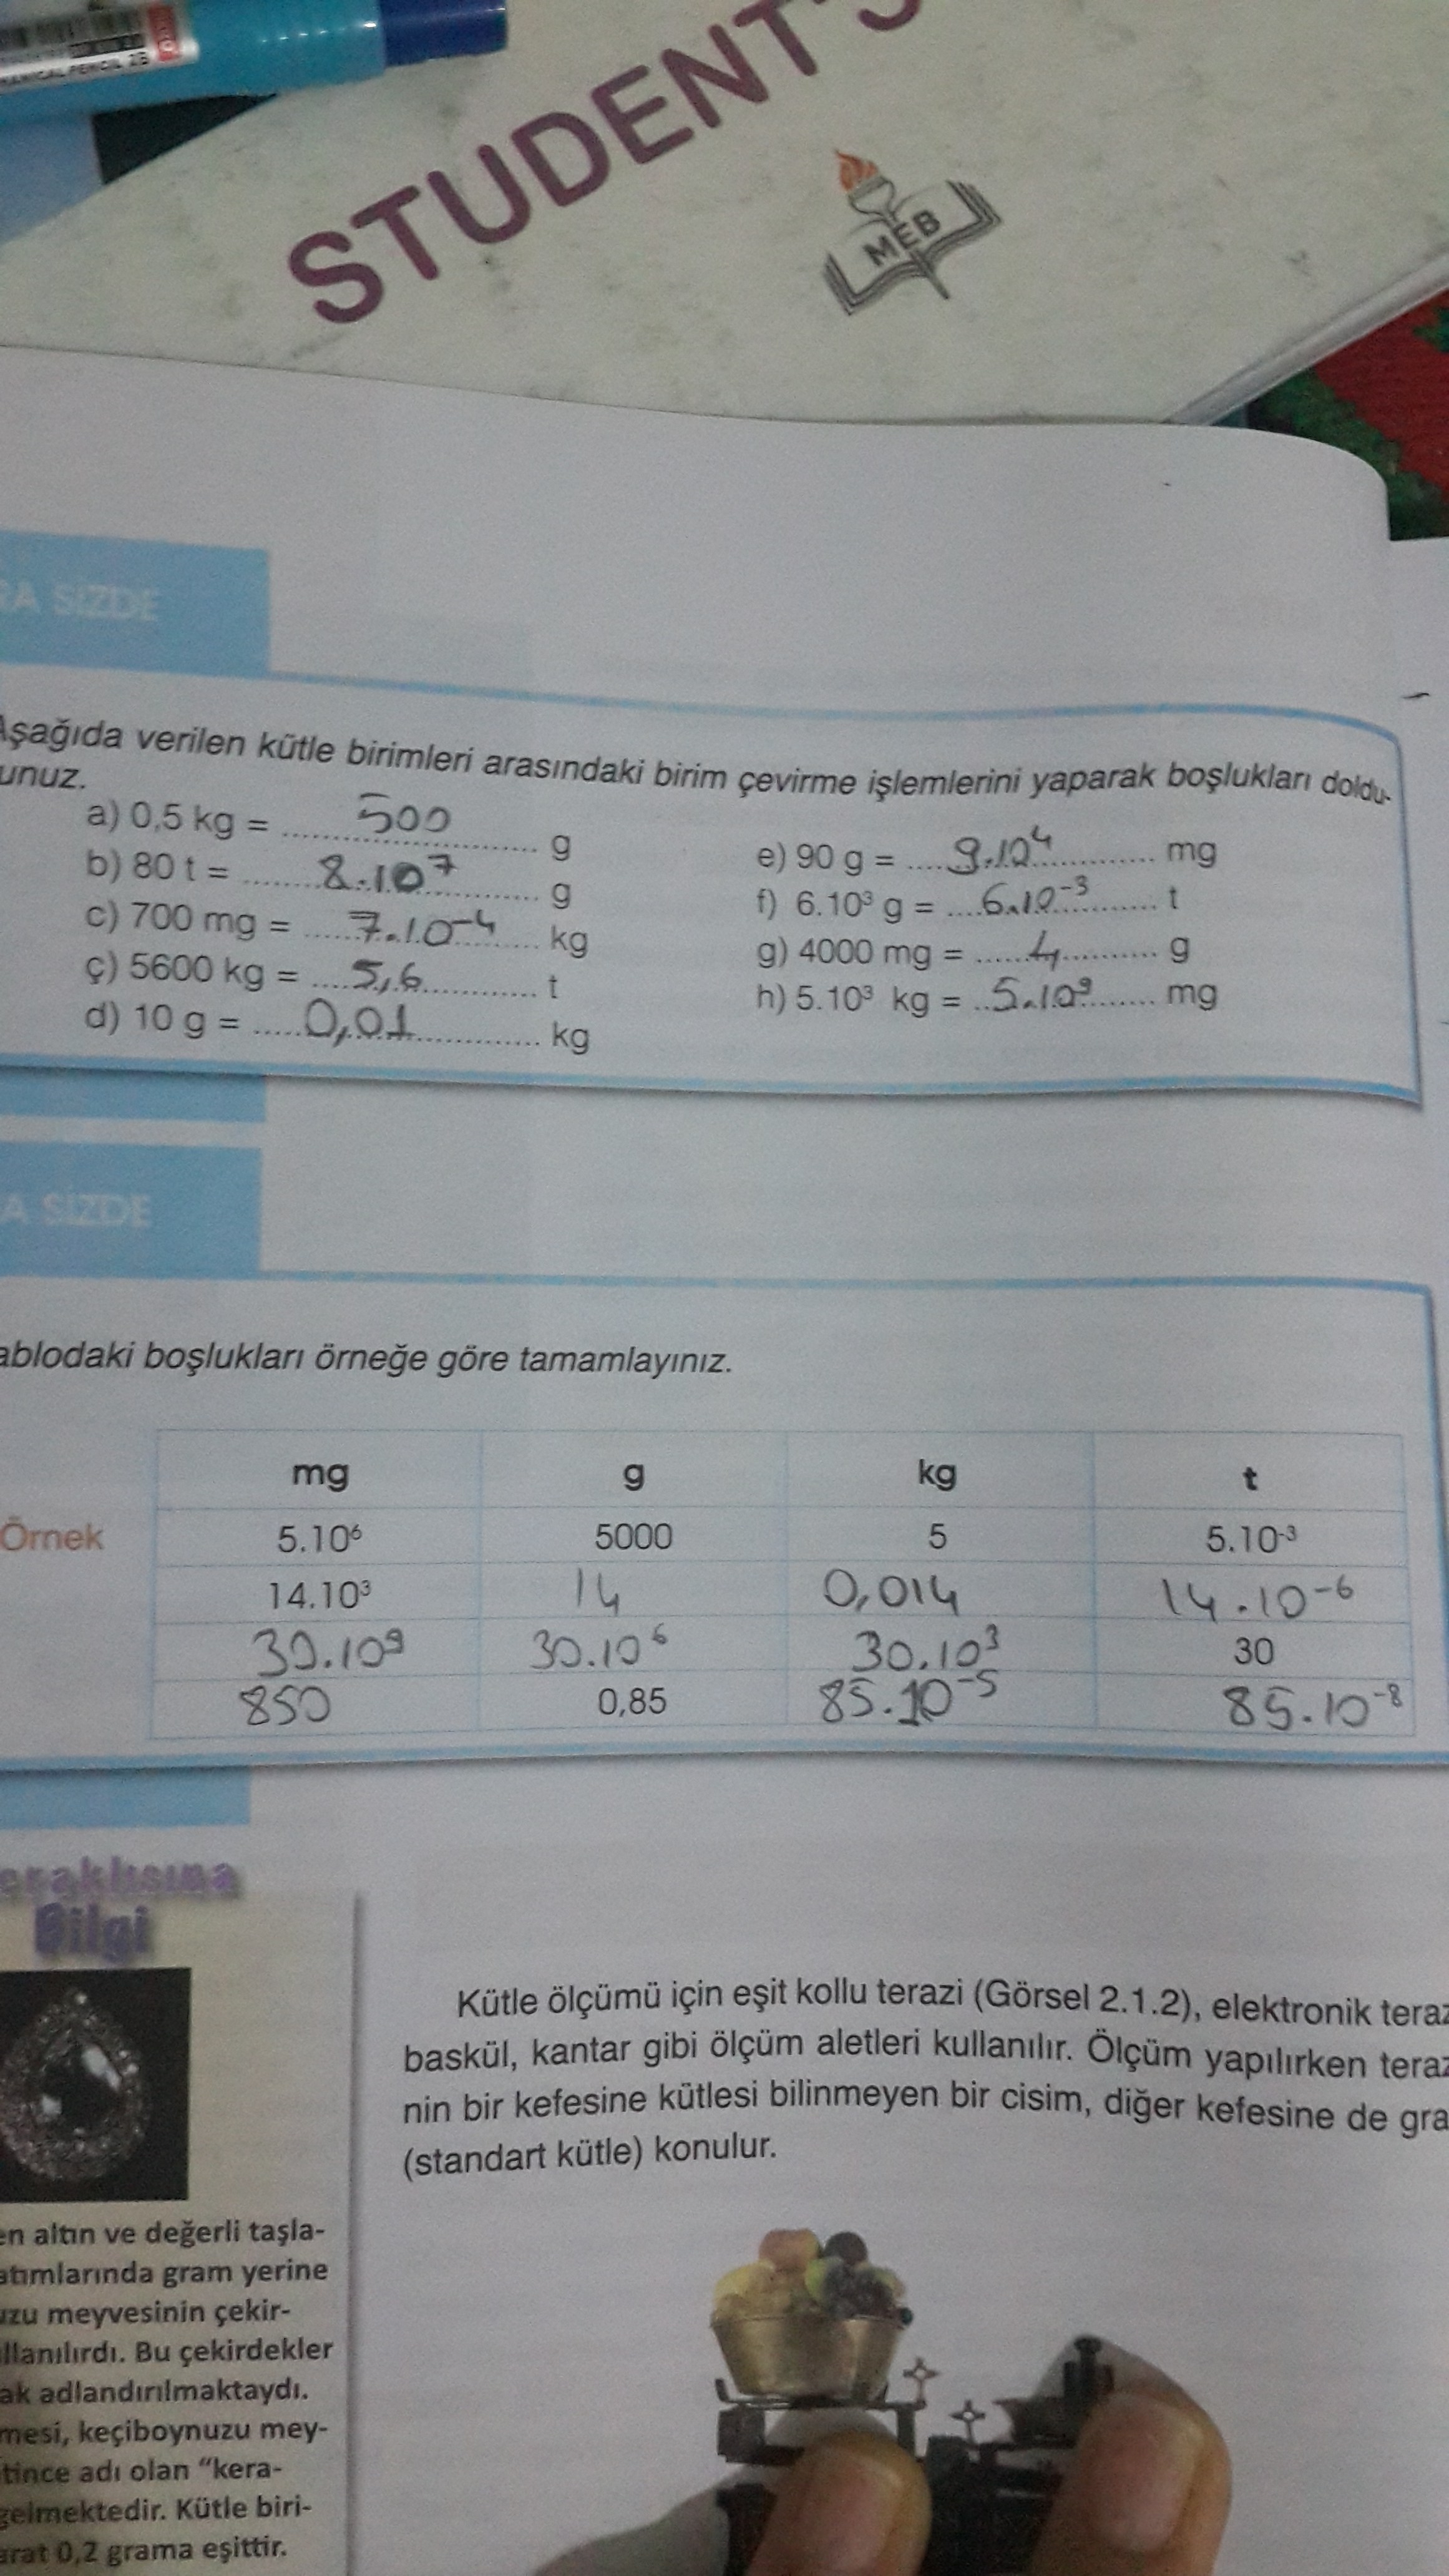 MECHANICAL PENCIL 2B
STUDENT'S
MEB
RA SİZDE
Aşağıda verilen kütle birimleri arasındaki birim çevirme işlemlerini yaparak boşlukları doldu-
unuz.
a) 0,5 kg = ..... 500 ..... g
b) 80 t = ..... 8.10⁷ ..... g
c) 700 mg = ..... 7.10⁻⁴ ..... kg
ç) 5600 kg = ..... 5,6 ..... t
d) 10 g = ..... 0,01 ..... kg
e) 90 g = ..... 9.10⁴ ..... mg
f) 6.10³ g = ..... 6.10⁻³ ..... t
g) 4000 mg = ..... 4 ..... g
h) 5.10³ kg = ..... 5.10⁹ ..... mg
A SİZDE
ablodaki boşlukları örneğe göre tamamlayınız.
mg g kg t
Örnek 5.10⁶ 5000 5 5.10⁻³
14.10³ 14 0,014 14.10⁻⁶
30.10⁹ 30.10⁶ 30.10³ 30
850 0,85 85.10⁻⁵ 85.10⁻⁸
eraklısına
Bilgi
en altın ve değerli taşla-
atımlarında gram yerine
uzu meyvesinin çekir-
llanılırdı. Bu çekirdekler
ak adlandırılmaktaydı.
mesi, keçiboynuzu mey-
tince adı olan “kera-
gelmektedir. Kütle biri-
arat 0,2 grama eşittir.
Kütle ölçümü için eşit kollu terazi (Görsel 2.1.2), elektronik teraz
baskül, kantar gibi ölçüm aletleri kullanılır. Ölçüm yapılırken teraz
nin bir kefesine kütlesi bilinmeyen bir cisim, diğer kefesine de gra
(standart kütle) konulur.